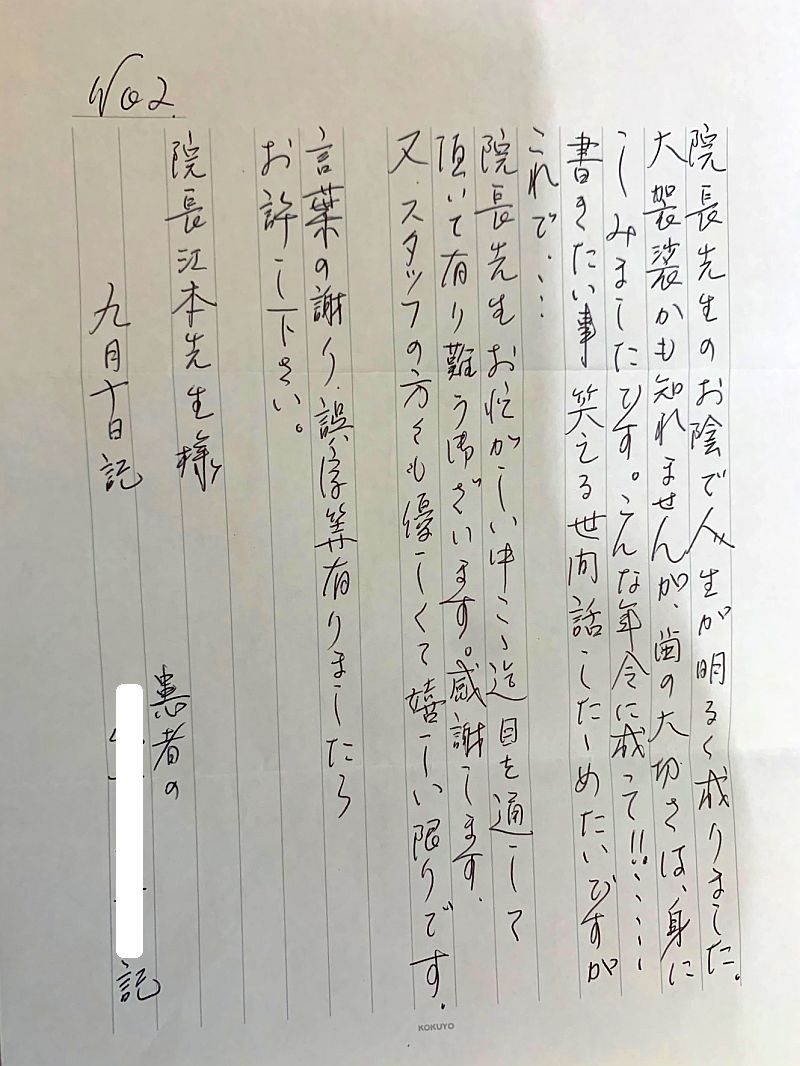 No2.
院長先生のお陰で人生が明るく成りました。
大袈裟かも知れませんが、歯の大切さは、身に
しみましたです。こんな年令に成って!!……
書きたい事 笑える世間話したゝめたいですが
これで‥‥
院長先生お忙がしい中こゝ迄目を通して
頂いて有り難う御ざいます。感謝します.
又.スタッフの方々も優しくて嬉しい限りです.
言葉の謝り.誤字等有りましたら
お許し下さい。
院長江本先生様
九月十日記
患者の
記
KOKUYO